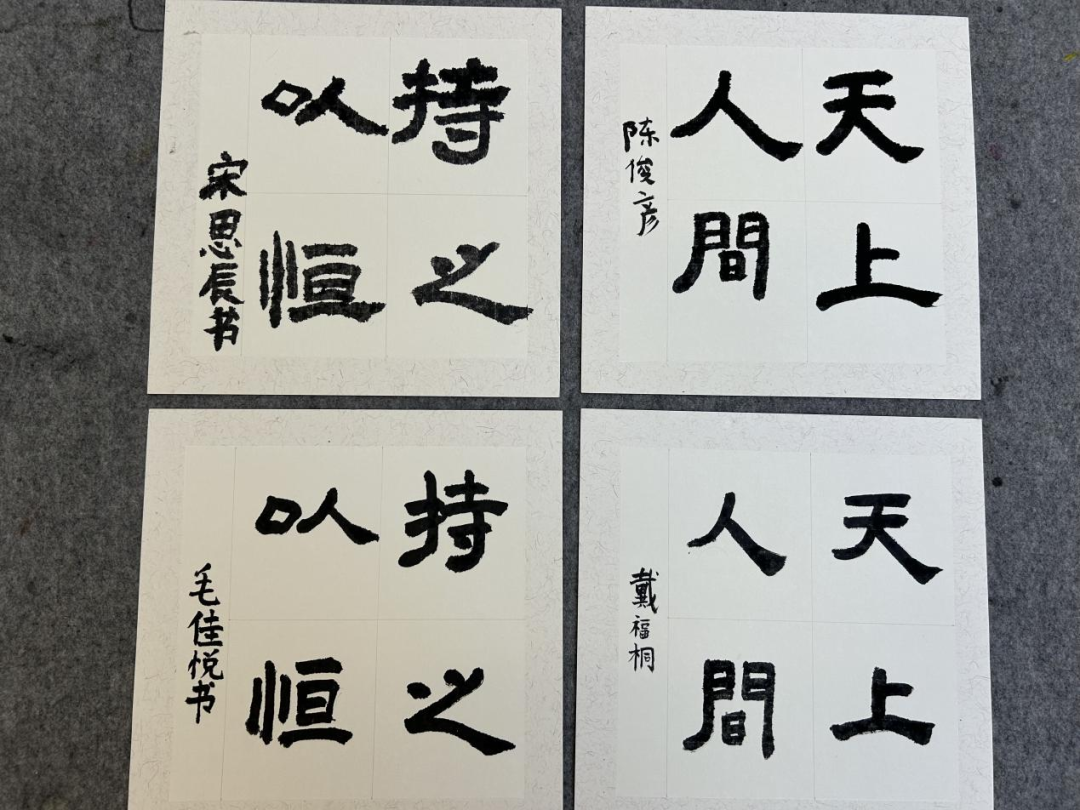 持之
以恒
宋思辰书
天上
人間
陈俊彦
持之
以恒
毛佳悦书
天上
人間
戴福桐